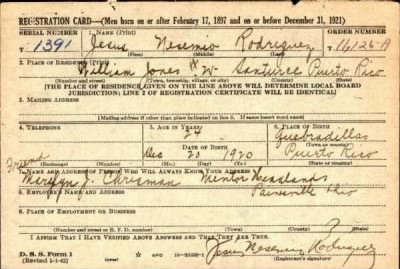 REGISTRATION CARD—(Men born on or after February 17, 1897 and on or before December 31, 1921)
SERIAL NUMBER 1. NAME (Print) ORDER NUMBER
T 1391 Jesus Nesemeo Rodriguez 16,125-A
(First) (Middle) (Last)
2. PLACE OF RESIDENCE (Print)
William Jones # Santurce Puerto Rico
(Number and street) (Town, township, village, or city) (County) (State)
[THE PLACE OF RESIDENCE GIVEN ON THE LINE ABOVE WILL DETERMINE LOCAL BOARD
JURISDICTION; LINE 2 OF REGISTRATION CERTIFICATE WILL BE IDENTICAL]
3. MAILING ADDRESS
(Mailing address if other than place indicated on line 2. If same insert word same)
4. TELEPHONE 5. AGE IN YEARS 6. PLACE OF BIRTH
Quebradillas
DATE OF BIRTH (Town or county)
Dec 20 1920 Puerto Rico
(Exchange) (Number) (Mo.) (Day) (Yr.) (State or country)
Friend
7. NAME AND ADDRESS OF PERSON WHO WILL ALWAYS KNOW YOUR ADDRESS
Marilyn J. Chrisman Mentor Headlands
8. EMPLOYER'S NAME AND ADDRESS Painesville Ohio
9. PLACE OF EMPLOYMENT OR BUSINESS
(Number and street or R. F. D. number) (Town) (County) (State)
I AFFIRM THAT I HAVE VERIFIED ABOVE ANSWERS AND THAT THEY ARE TRUE.
D. S. S. Form 1 GPO Jesus Nesemeo Rodriguez
(Revised 1-1-42) (Registrant's signature)